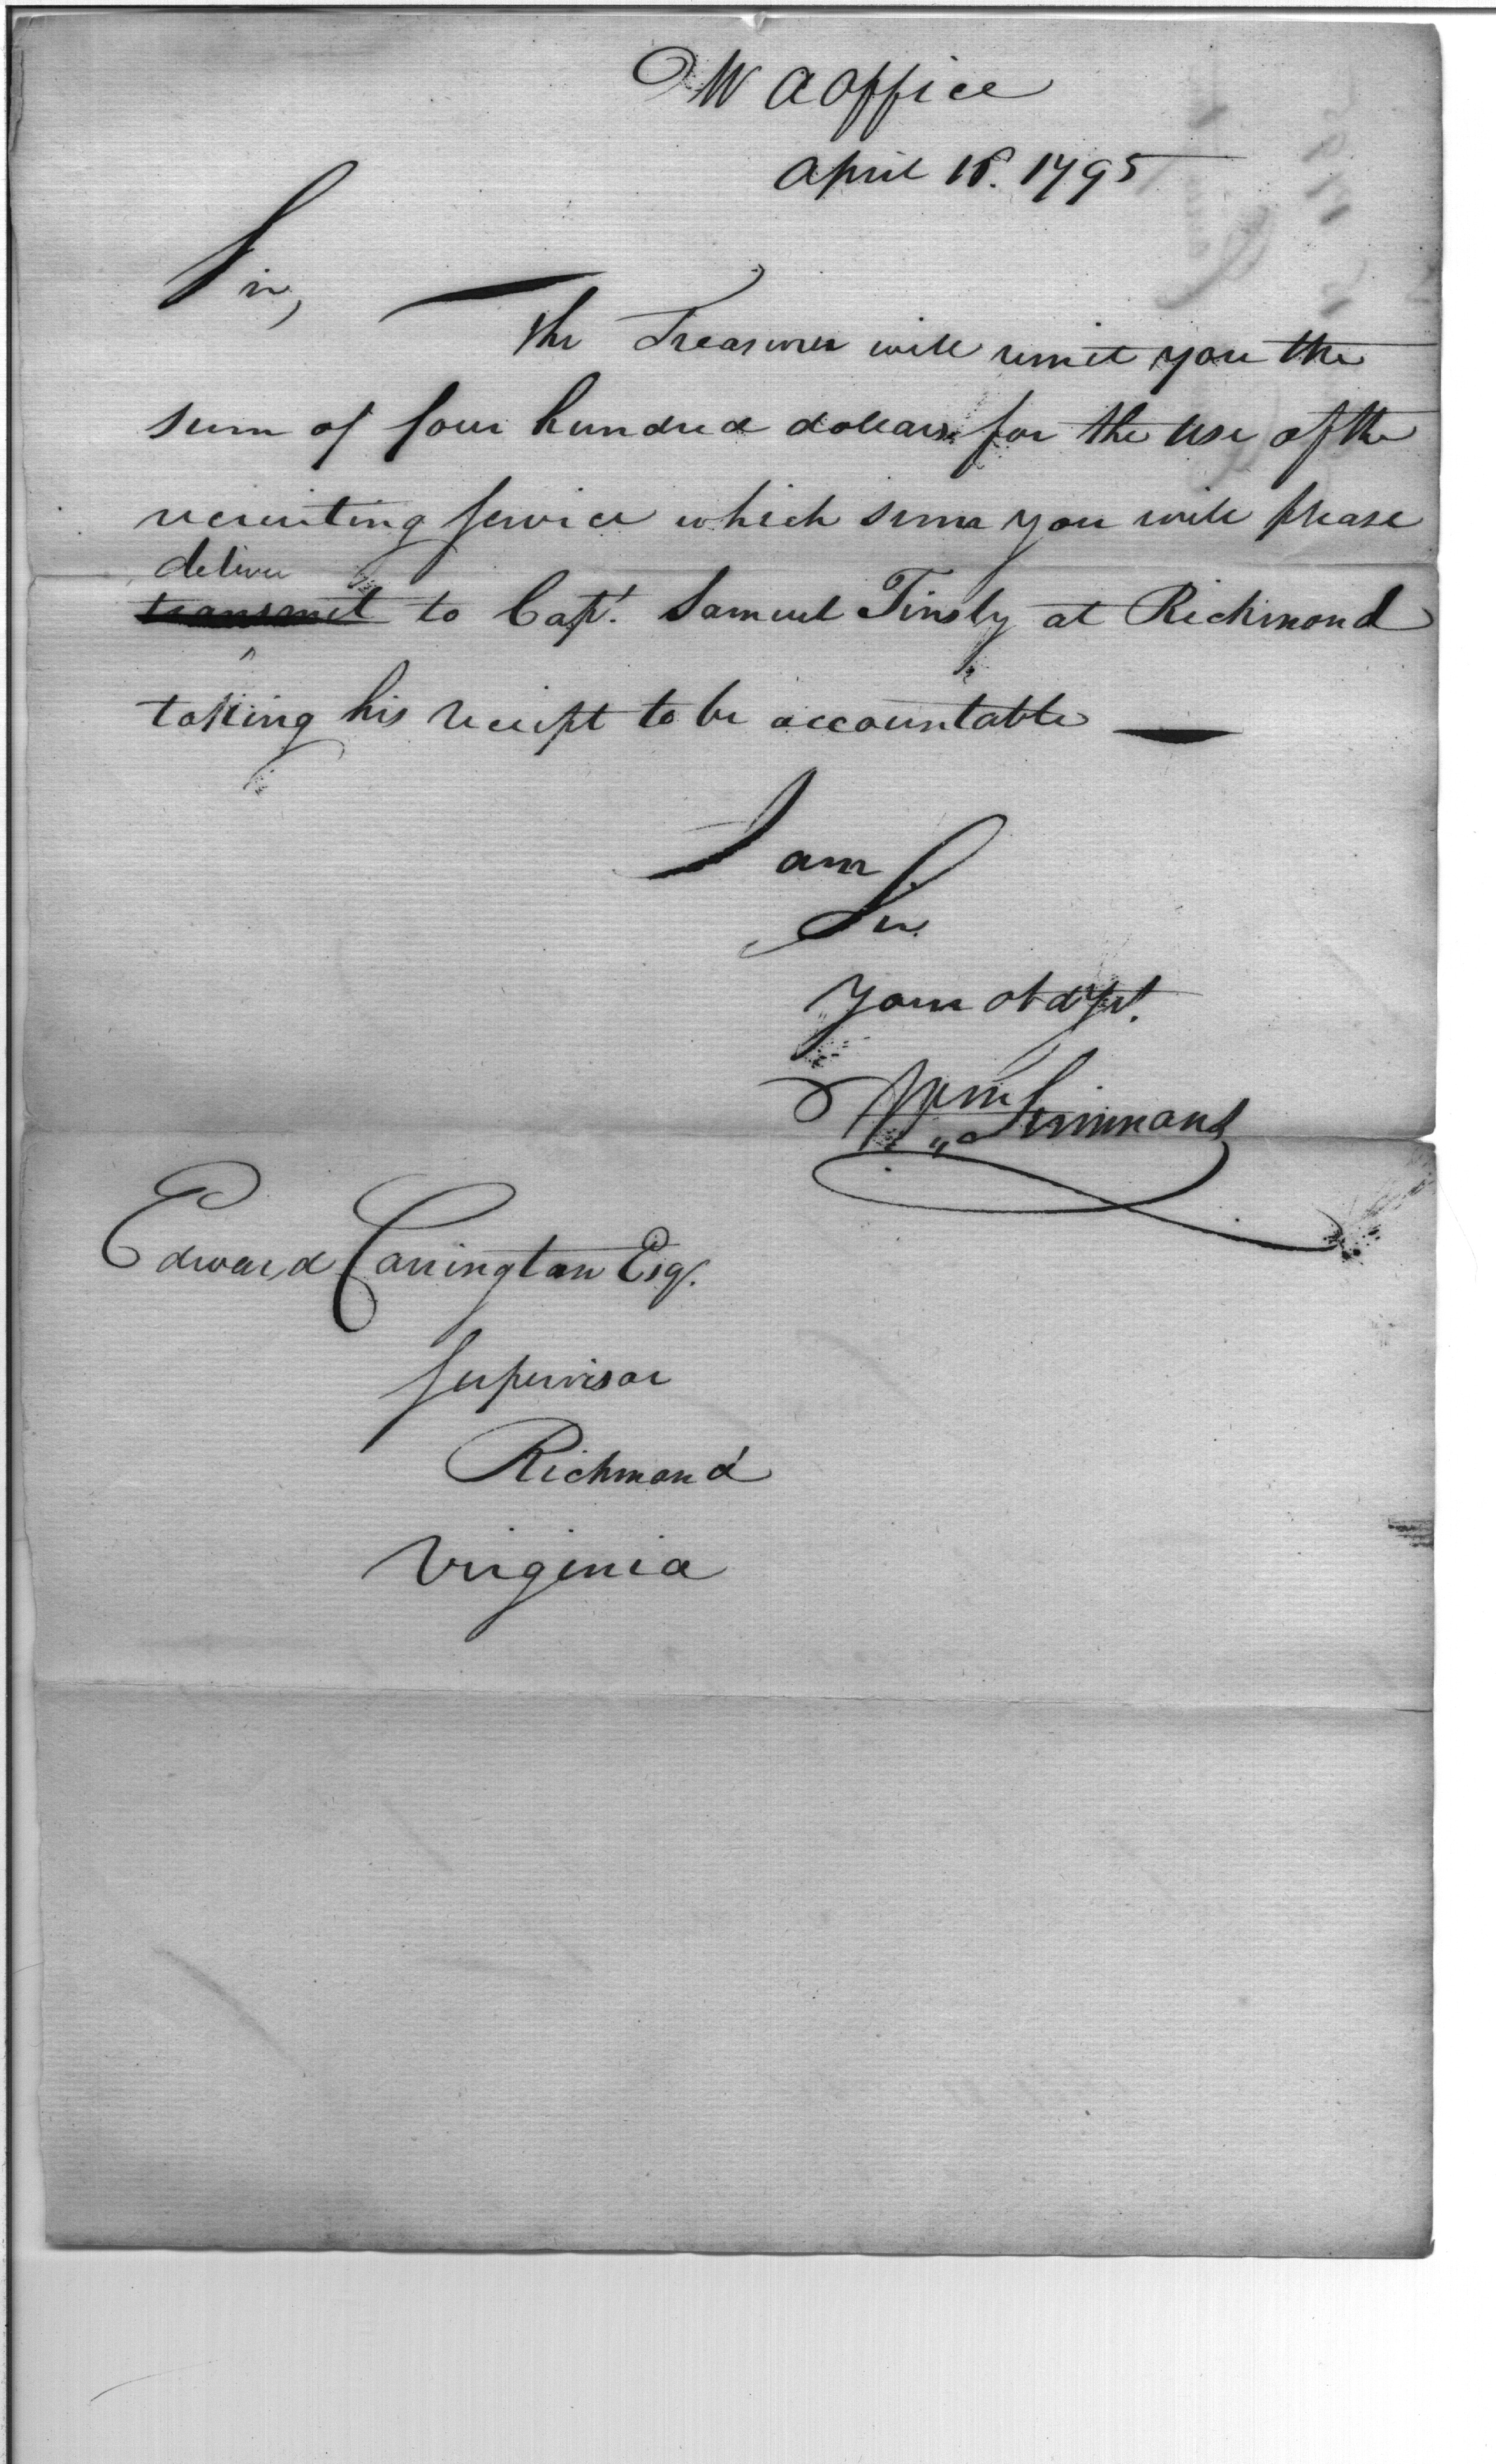 W A Office
April 18. 1795
Sir,
The Treasurer will remit you the
sum of four hundred dollars for the use of the
recruiting service which sum you will please
deliver
transmit to Capt. Samuel Tinsly at Richmond
taking his receipt to be accountable —
I am
Sir
Your obdt
Wm Simmons
Edward Carrington Esq.
Supervisor
Richmond
Virginia